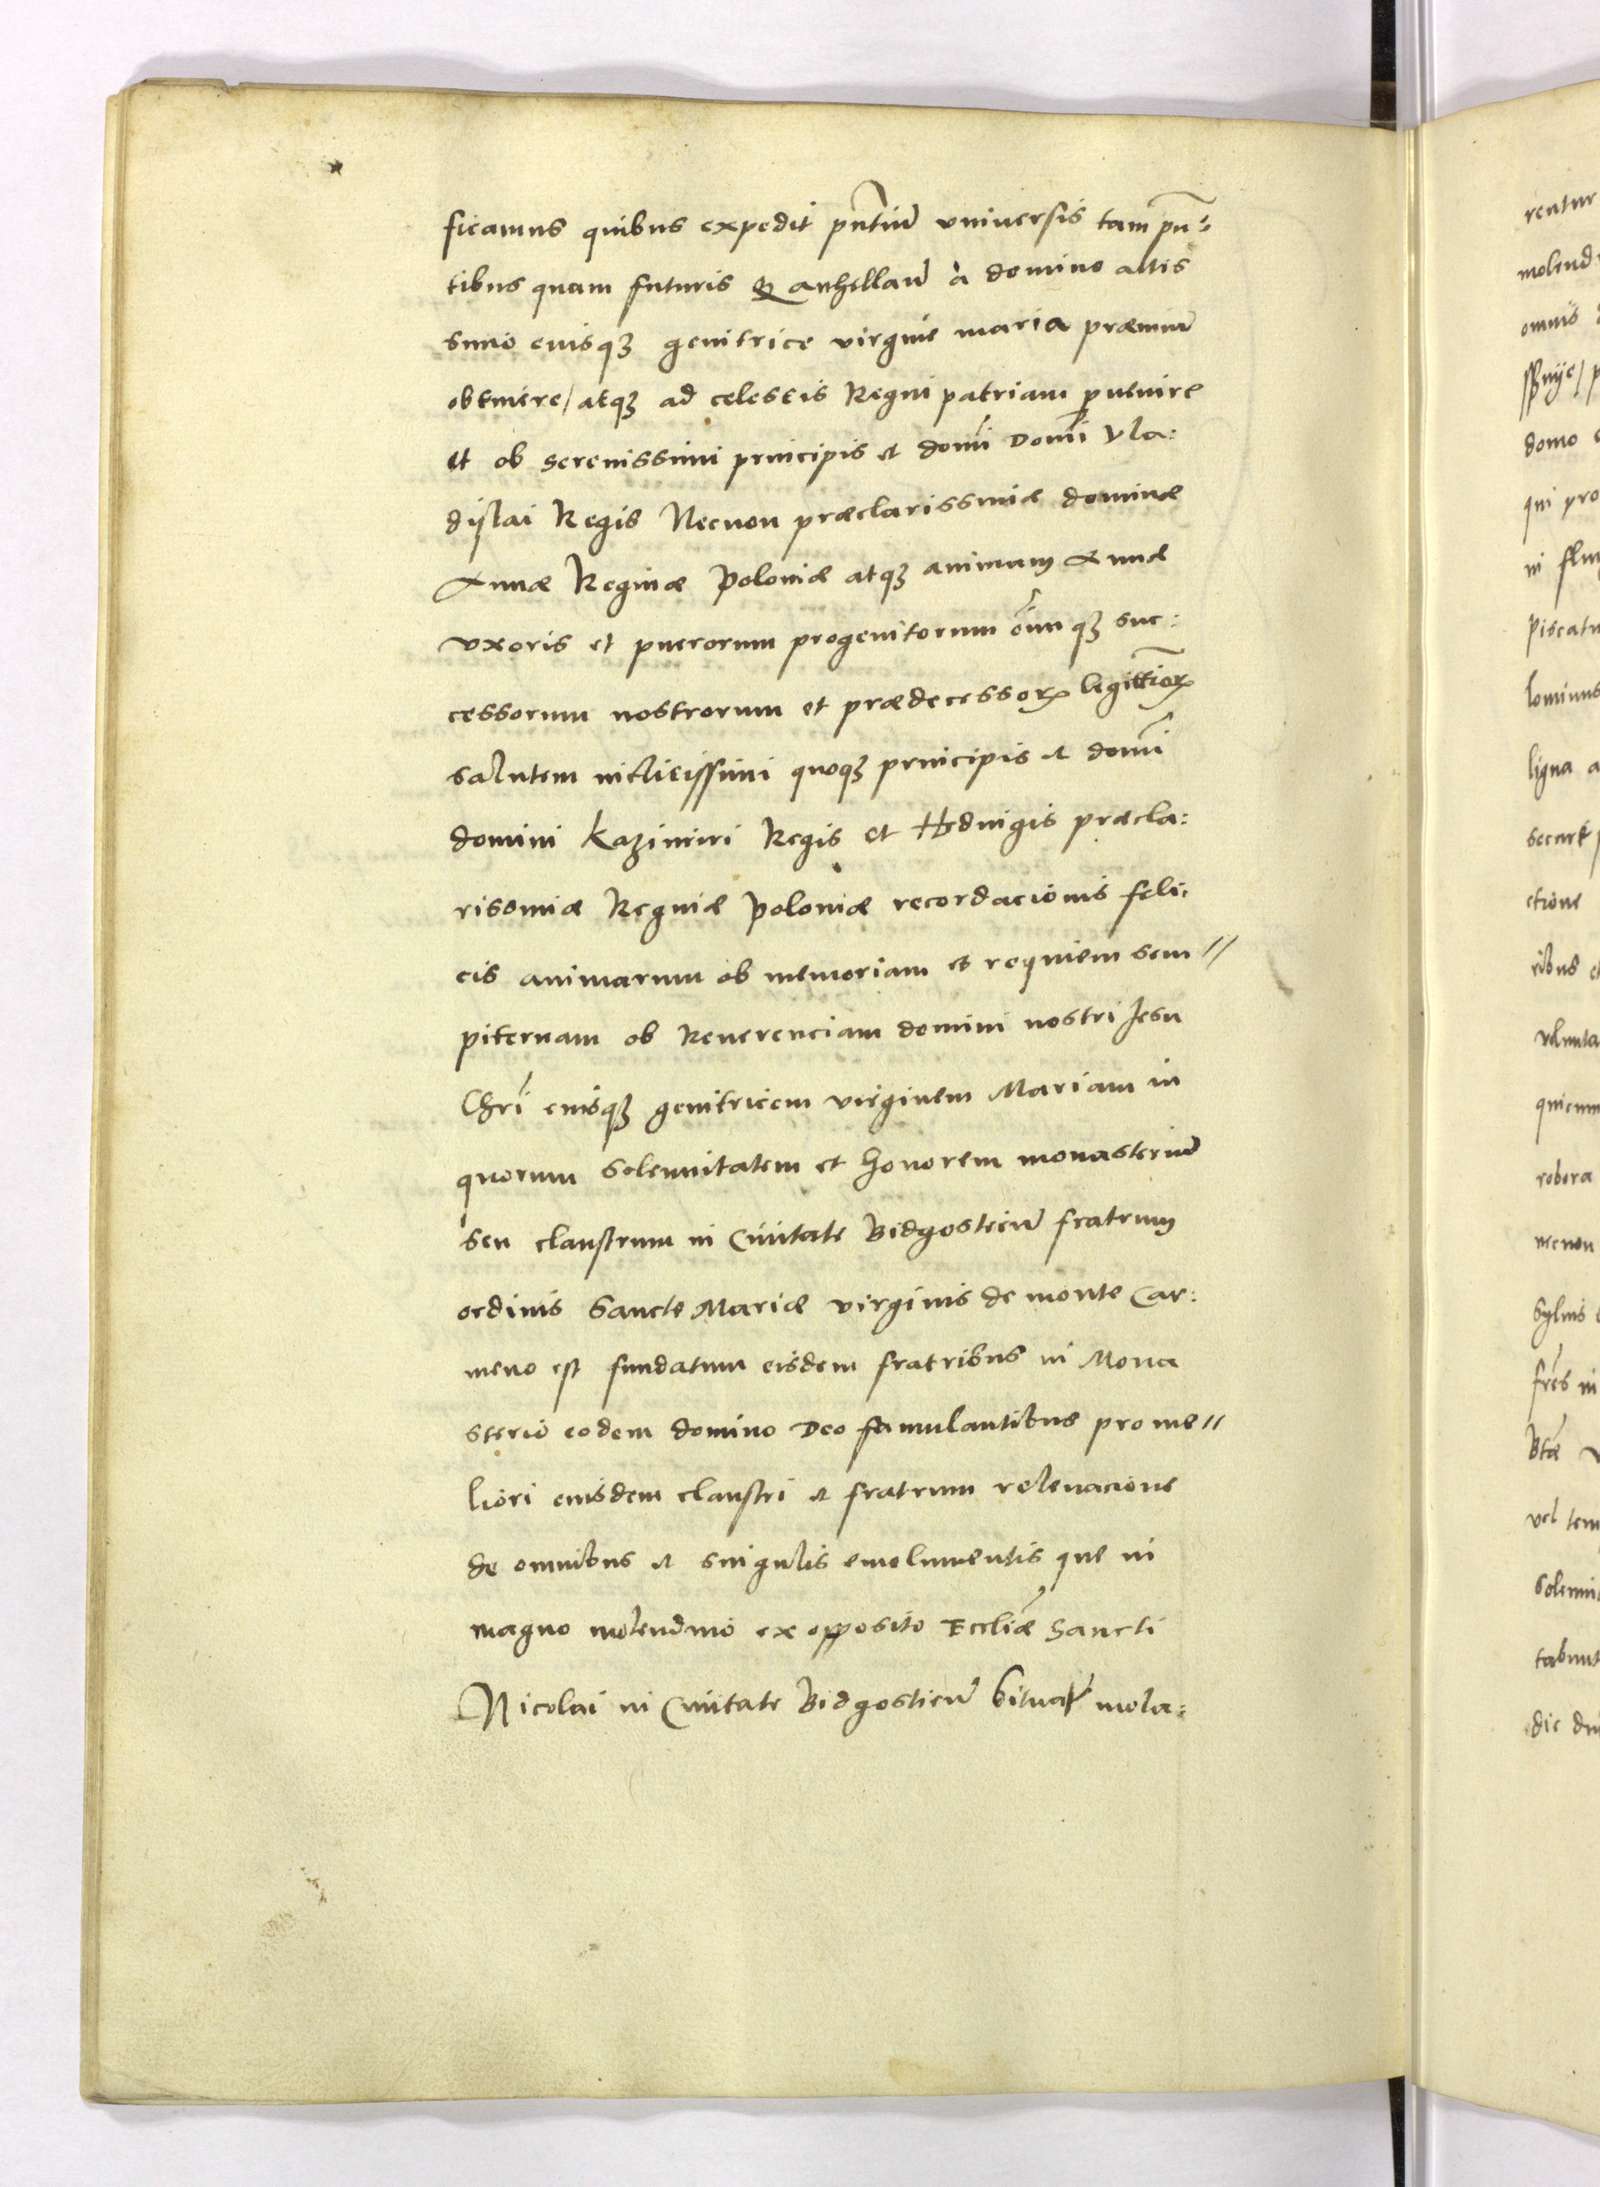 ficamus quibus expedit pñtiũ vniuersis tam pñ:
tibus quam futuris Q anhellãũ à domino altis
simo eiusqȝ genitrice virgine maria præmiũ
obtinere/ atqȝ ad celestis Regni patriam puenire
et ob serenissimi principis et domĩ Domĩ Vla:
dislai Regis Necnon præclarissimæ dominæ
Annæ Reginæ Poloniæ atqȝ animam Annæ
vxoris et puerorum progenitorum õiumqȝ suc:
cessorum nostrorum et prædecessoꝝ legittĩoꝝ
salutem inclicissimi quoqȝ principis et domĩ
domini Kazimiri Regis et Heduigis præcla:
rissimæ Reginæ Poloniæ recordacionis feli:
cis animarum ob memoriam et requiem sem //
piternam ob Reuerenciam domini nostri Jesu
Chrĩ eiusqȝ genitricem virginem Mariam in
quorum solemnitatem et honorem monasteriũ
seu claustrum in Ciuitate Bidgosticiũ fratrum
ordinis Sancte Mariæ virginis de monte Car:
meno est fundatum eisdem fratribus in Mona
sterio eodem domino Deo famulantibus pro me //
liori eiusdem claustri et fratrum releuacione
de omnibus et singulis emolumentis que in
magno molendino ex opposito Eccliæ̃ Sancti
Nicolai in Ciuitate Bidgosticiũ situat̃ mola:
reatur
omnis
domo
qui pro
in
piscatu
ligna a
ctione
ribus et
robora
frẽs in
vel tem
solemni
tabunt